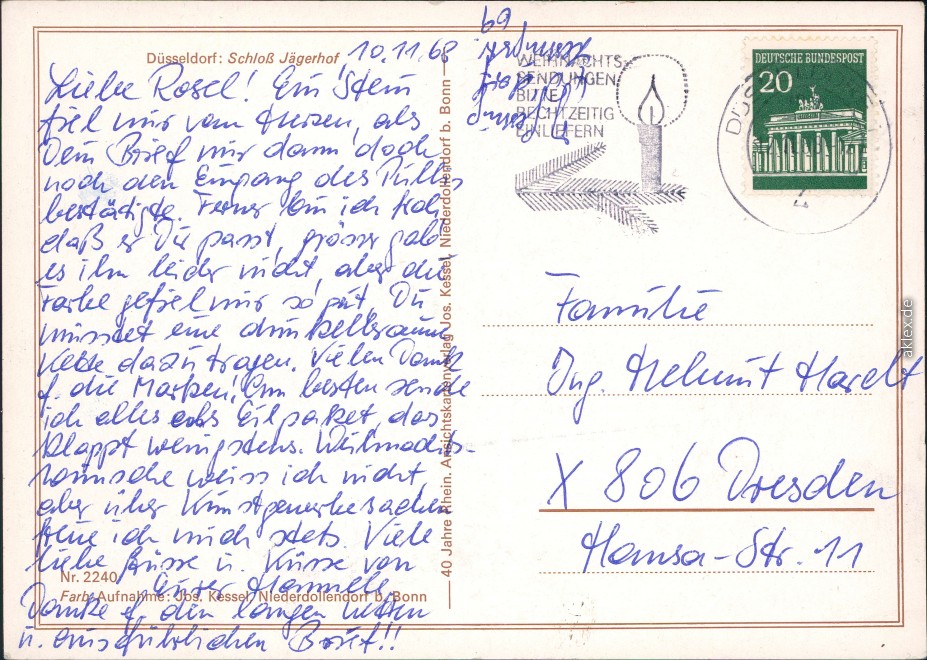 Düsseldorf: Schloß Jägerhof
10.11.68
Liebe Rosel! Ein Stein
fiel mir vom Herzen, als
Dein Brief mir dann doch
noch den Eingang des Pullis
bestätigte. Ferner bin ich froh
daß er Dir passt, grösser gab
es ihn leider nicht, aber die
Farbe gefiel mir so gut. Du
müsstet eine dunkelbraune
Kette dazu tragen. Vielen Dank
f. die Marken! Am besten sende
ich alles als Eilpaket, das
klappt wenigstens. Weihnachts-
wünsche weiss ich nicht,
aber über Kunstgewerbesachen
freue ich mich stets. Viele
liebe Grüsse u. Küsse von
Eurer Hannelle
Danke f. den langen netten
u. ausführlichen Brief!!
Nr. 2240
Farb-Aufnahme: Jos. Kessel, Niederdollendorf b. Bonn
40 Jahre Rhein. Ansichtskartenverlag Jos. Kessel, Niederdollendorf b. Bonn
WEIHNACHTS-
SENDUNGEN
BITTE
RECHTZEITIG
EINLIEFERN
DEUTSCHE BUNDESPOST
20
Familie
Ing. Helmut Hardt
X 806 Dresden
Hansa-Str. 11
aklex.de